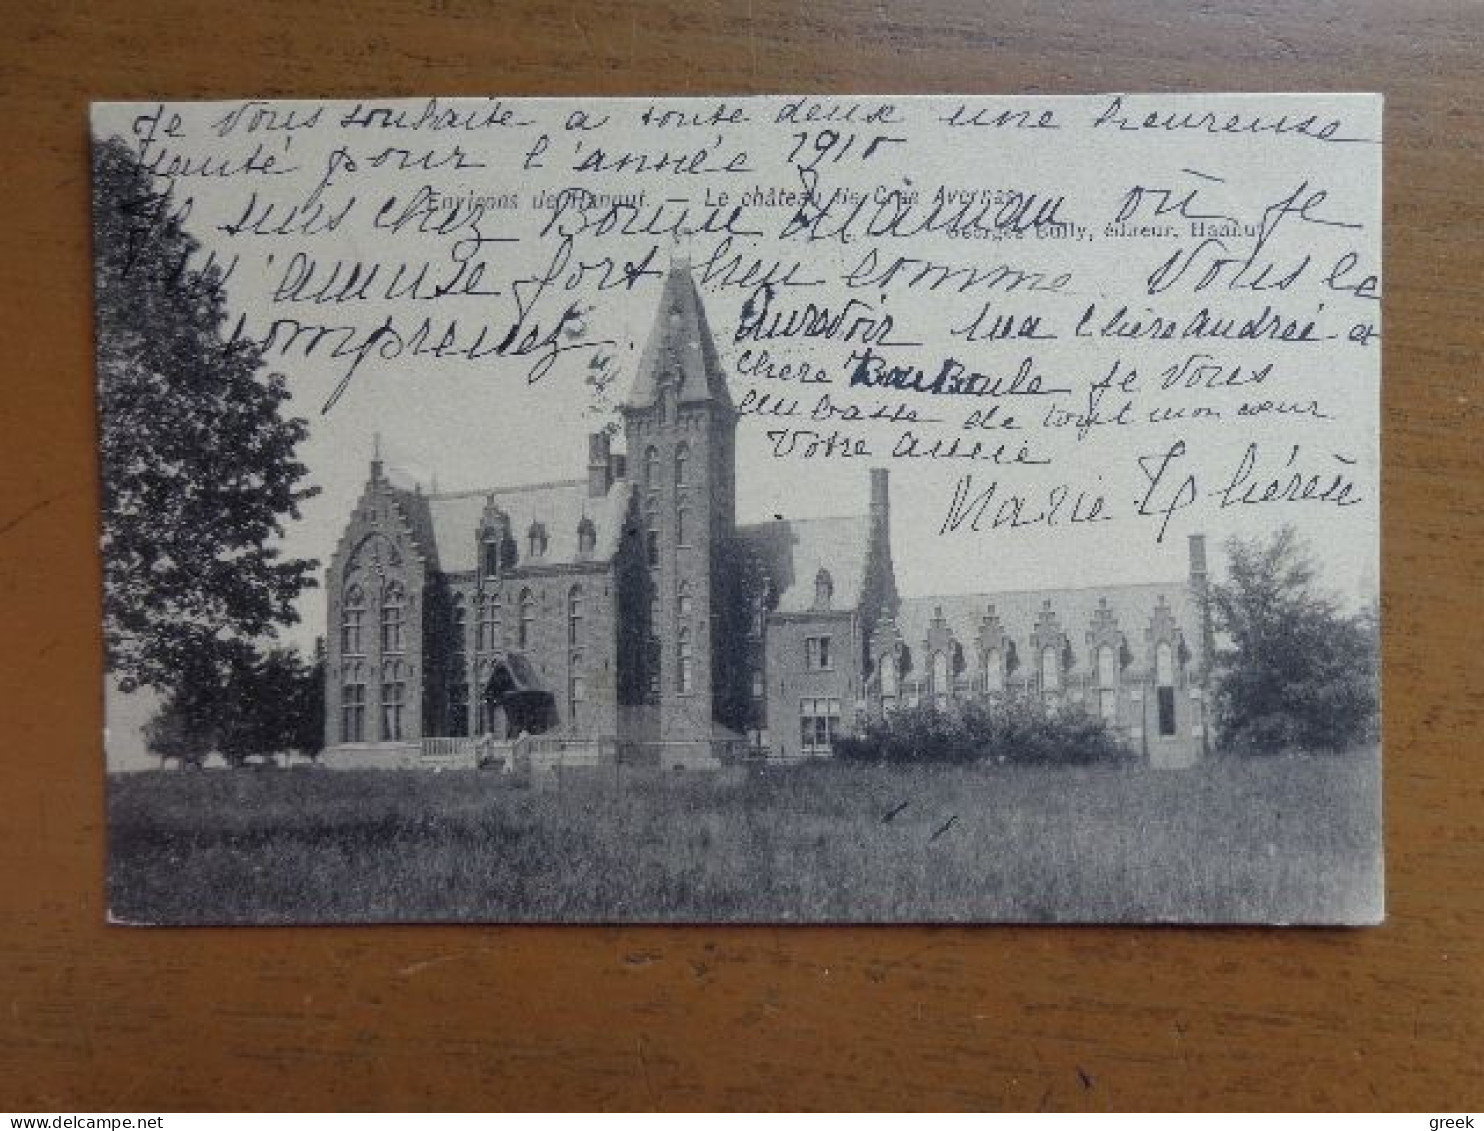 Je vous souhaite a toute deux une heureuse
santé pour l'année 1910
Environs de Hannut. — Le château de Cras Avernas
Je suis chez Bonne Maman où Je
Georges Bully, éditeur, Hannut
m'amuse fort bien comme Vous le
comprenez. Aurevoir ma chère Andreé et
chère Je vous
embrasse de tout mon cœur
Votre amie
Marie Thérèse
greek